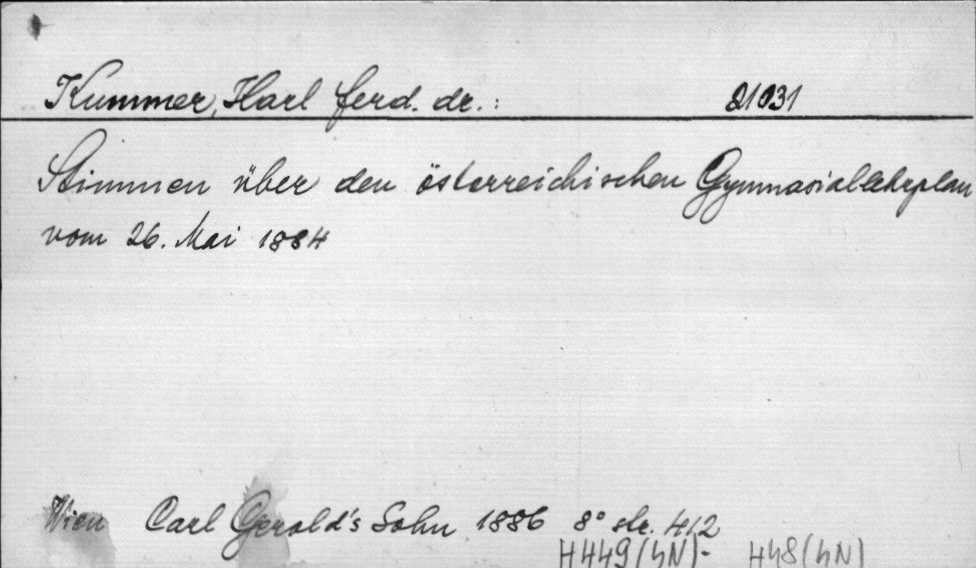 Kummer, Karl Ferd. dr.: 21031
Stimmen über den österreichischen Gymnasiallehrplan
vom 26. Mai 1884
Wien Carl Gerold's Sohn 1886 8° str. 412
H449(4N)- H48(4N)